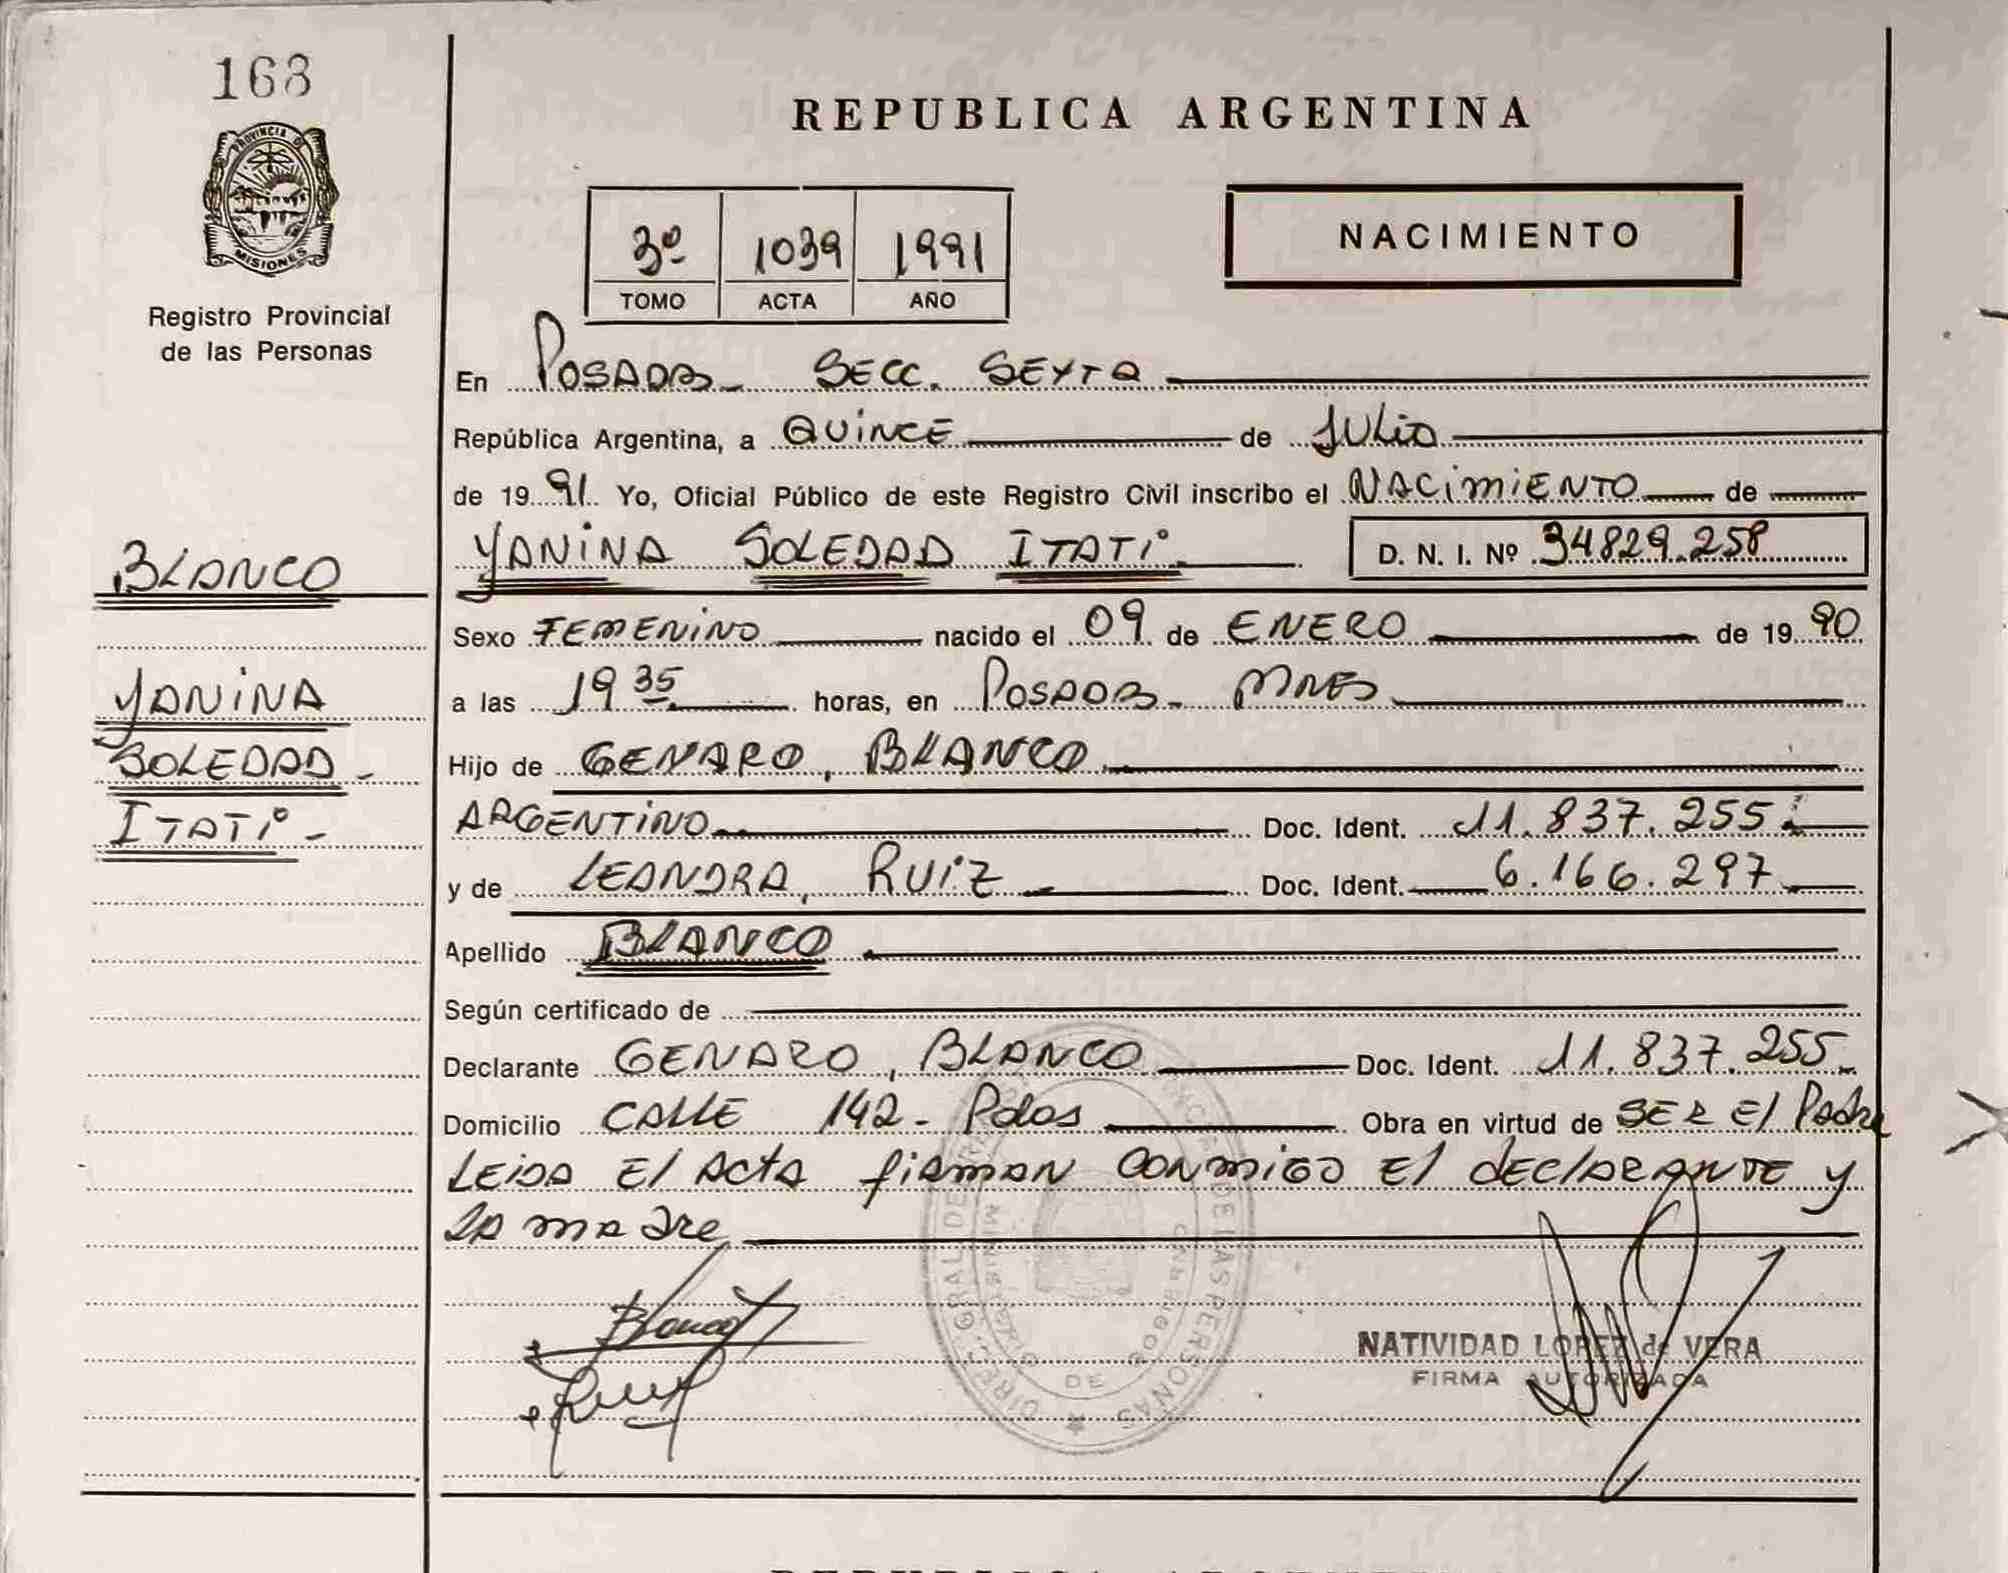 168
PROVINCIA DE
MISIONES
Registro Provincial
de las Personas
BLANCO
YANINA
SOLEDAD -
ITATI -
REPUBLICA ARGENTINA
3º 1039 1991
TOMO ACTA AÑO
NACIMIENTO
En POSADAS - SECC. SEXTA
República Argentina, a QUINCE de JULIO
de 1991 Yo, Oficial Público de este Registro Civil inscribo el NACIMIENTO de
YANINA SOLEDAD ITATI D. N. I. Nº 34829.258
Sexo FEMENINO nacido el 09 de ENERO de 1990
a las 19 35 horas, en POSADAS - MNES
Hijo de GENARO, BLANCO
ARGENTINO Doc. Ident. 11.837.255
y de LEANDRA, RUIZ Doc. Ident. 6.166.297
Apellido BLANCO
Según certificado de
Declarante GENARO, BLANCO Doc. Ident. 11.837.255
Domicilio CALLE 142 - Pdas Obra en virtud de SER El Padre
LEIDA El ACTA fiRMAN CONMIGO El dEClARANTE y
LA MADre
Blanco
NATIVIDAD LOPEZ de VERA
FIRMA AUTORIZADA
DE LAS PERSONAS
REPUBLICA ARGENTINA